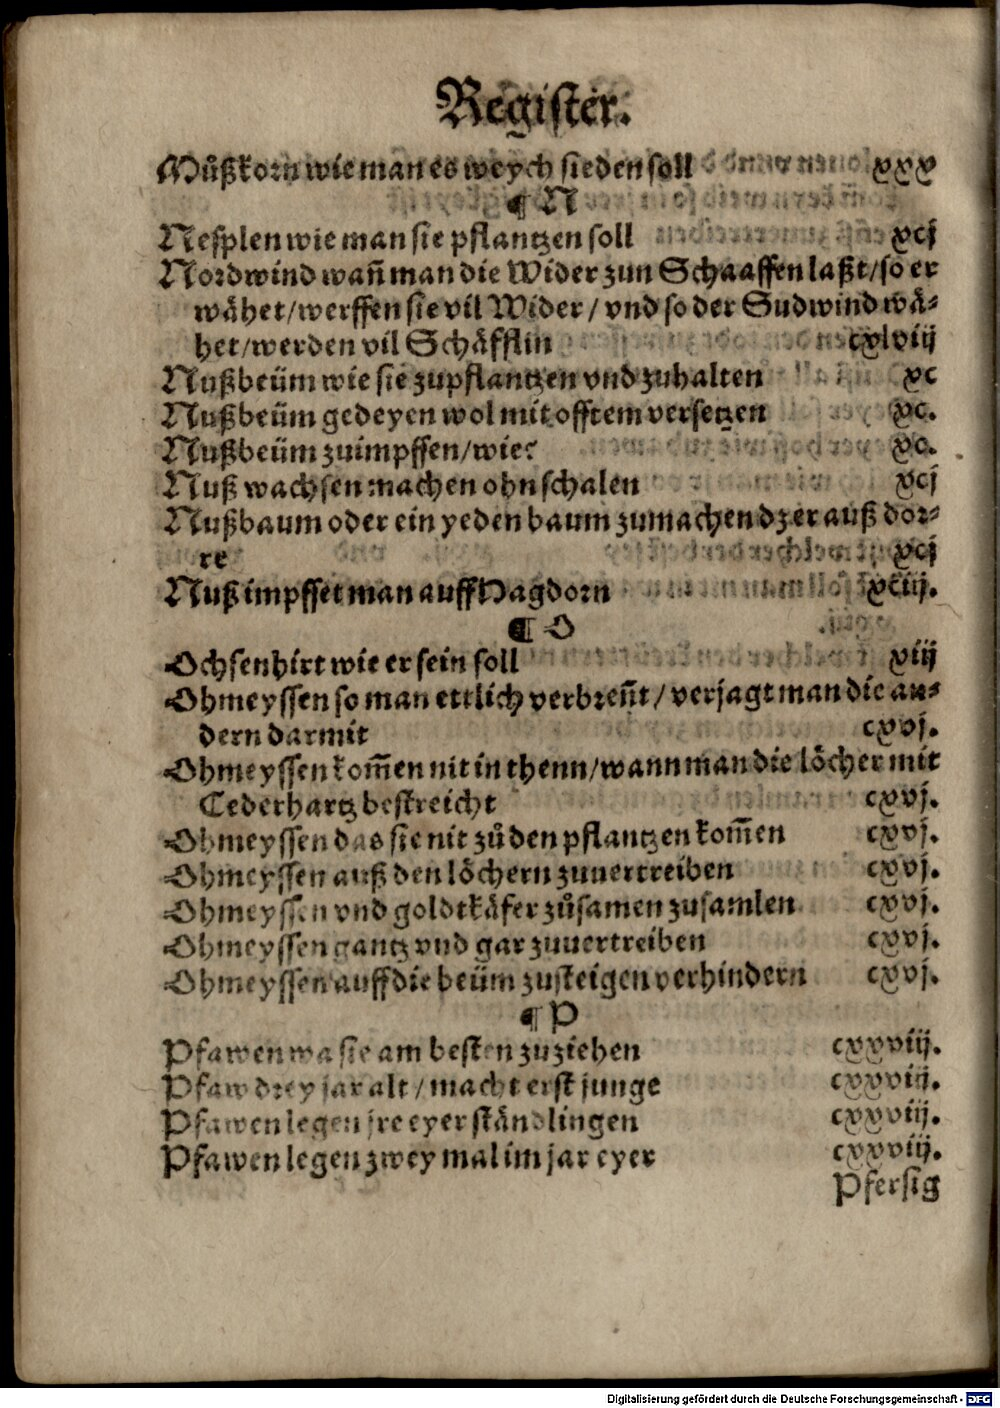 Register.
Můßkorn wie man es weych sieden soll xxx
¶ N
Nesplen wie man sie pflantzen soll xcj
Nordwind wañ man die Wider zun Schaaffen laßt/so er
wähet/werffen sie vil Wider/vnd so der Sudwind wä-
het/werden vil Schäfflin cxlviij
Nußbeüm wie sie zupflantzen vnd zuhalten xc
Nußbeüm gedeyen wol mit offtem versetzen xc.
Nußbeüm zuimpffen/wie? xc.
Nuß wachsen machen ohn schalen xcj
Nußbaum oder ein yeden baum zumachen dz er auß dor-
re xcj
Nuß impffet man auff Hagdorn xciij.
¶ O
Ochsenhirt wie er sein soll viij
Ohmeyssen so man ettlich verbreñt/verjagt man die an-
dern darmit cxvj.
Ohmeyssen kom̃en nit in thenn/wann man die löcher mit
Cederhartz bestreicht cxvj.
Ohmeyssen das sie nit zů den pflantzen kom̃en cxvj.
Ohmeyssen auß den löchern zuuertreiben cxvj.
Ohmeyssen vnd goldtkäfer zůsamen zusamlen cxvj.
Ohmeyssen gantz vnd gar zuuertreiben cxvj.
Ohmeyssen auff die beüm zusteigen verhindern cxvj.
¶ P
Pfawen wa sie am besten zuziehen cxxviij.
Pfaw drey jar alt/macht erst junge cxxviij.
Pfawen legen jre eyer ständlingen cxxviij.
Pfawen legen zwey mal im jar eyer cxxviij.
Pfersig
Digitalisierung gefördert durch die Deutsche Forschungsgemeinschaft - DFG